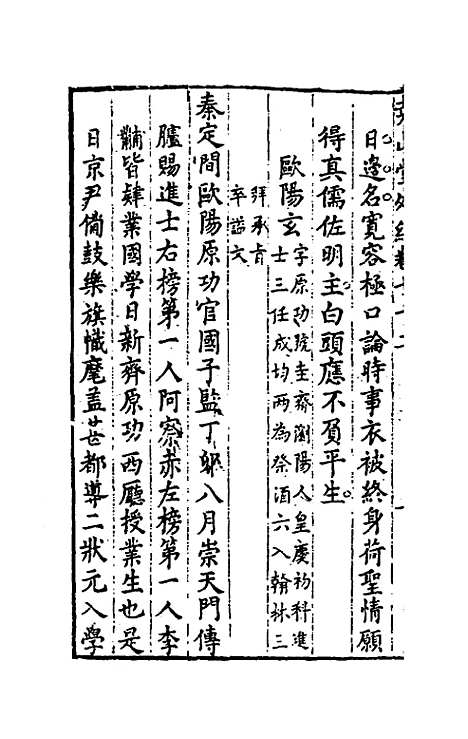 日邊名寛容極口論時事衣被終身荷聖情願
得真儒佐明主白頭應不負平生
歐陽玄字原功號圭齋瀏陽人皇慶初科進
士三任成均兩為祭酒六入翰林三
拜承旨
卒諡文
秦定間歐陽原功官國子監丁卯八月崇天門傳
臚賜進士右榜第一人阿察赤左榜第一人李
黼皆肄業國學日新齊原功西廳授業生也是
日京尹備鼓樂旗幟麾盖甚都導二狀元入學